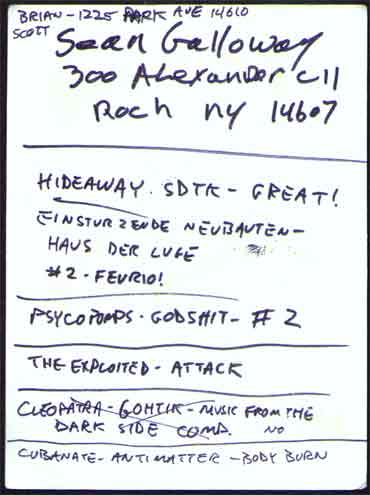 BRIAN - 1225 PARK AVE 14610
SCOTT
Sean Galloway
300 Alexander
Roch NY 14607
HIDEAWAY. SDTK - GREAT!
EINSTURZENDE NEUBAUTEN -
HAUS DER LUGE
#2 - FEURIO!
PSYCOPOMPS - GODSHIT - #2
THE EXPLOITED - ATTACK
CLEOPATRA - GOHTIK - MUSIC FROM THE
DARK SIDE COMP. NO
CUBANATE - ANTIMATTER - BODY BURN